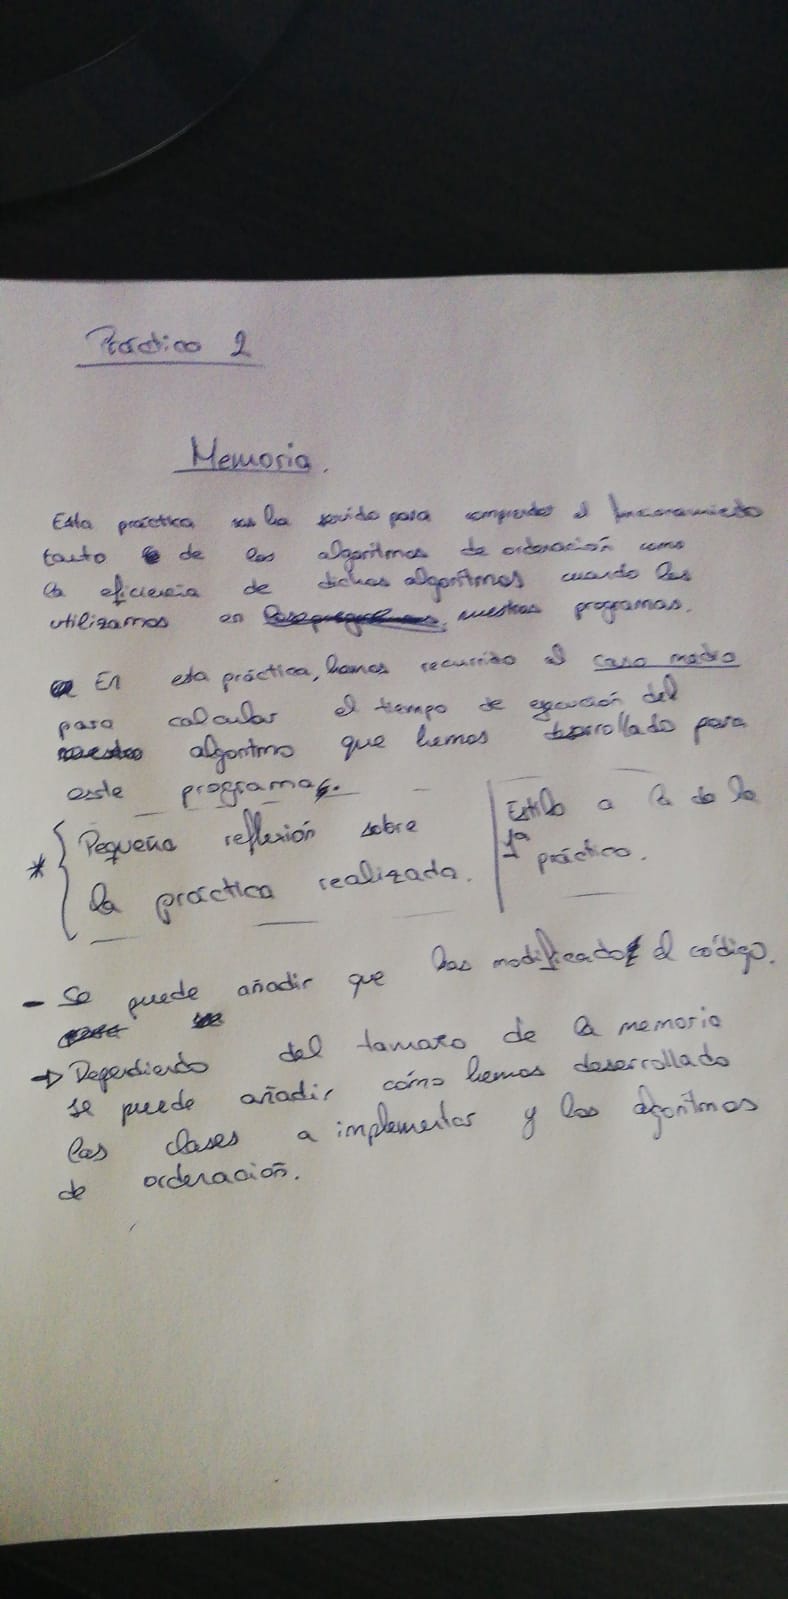 Práctica 2
Memoria.
Esta práctica nos ha servido para comprender el funcionamiento
tanto de los algoritmos de ordenación como
la eficiencia de dichos algoritmos cuando los
utilizamos en nuestros programas.
En esta práctica, hemos recurrido al caso medio
para calcular el tiempo de ejecución del
algoritmo que hemos desarrollado para
este programa.
* Pequeña reflexión sobre
la práctica realizada.
Estilo a la de la
1ª práctica.
- Se puede añadir que has modificado el código.
→ Dependiendo del tamaño de la memoria
se puede añadir cómo hemos desarrollado
las clases a implementar y los algoritmos
de ordenación.